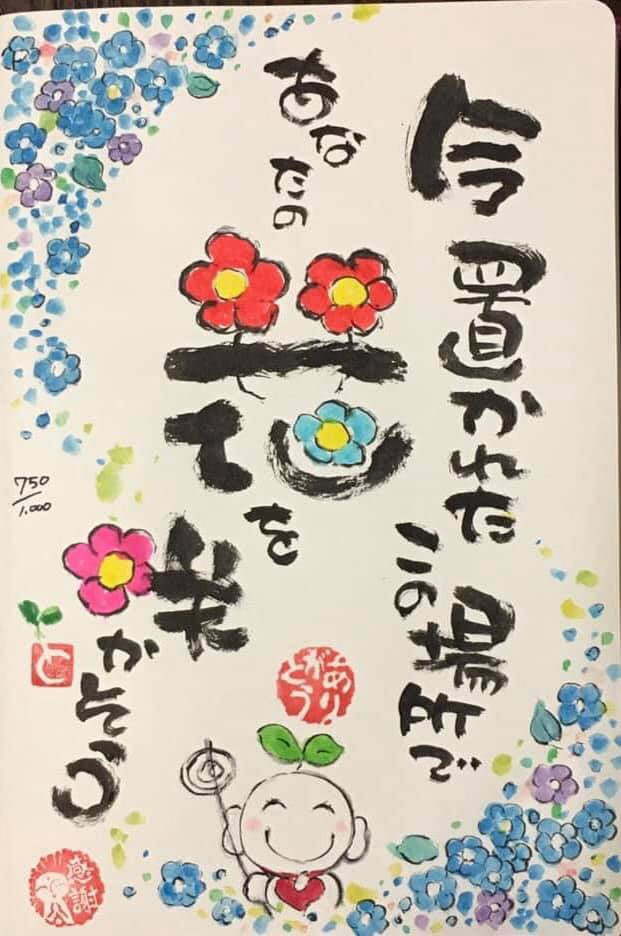 今置かれた
この場所で
あなたの
花を
咲かそう
ありがとう
750/1.000
と
感謝